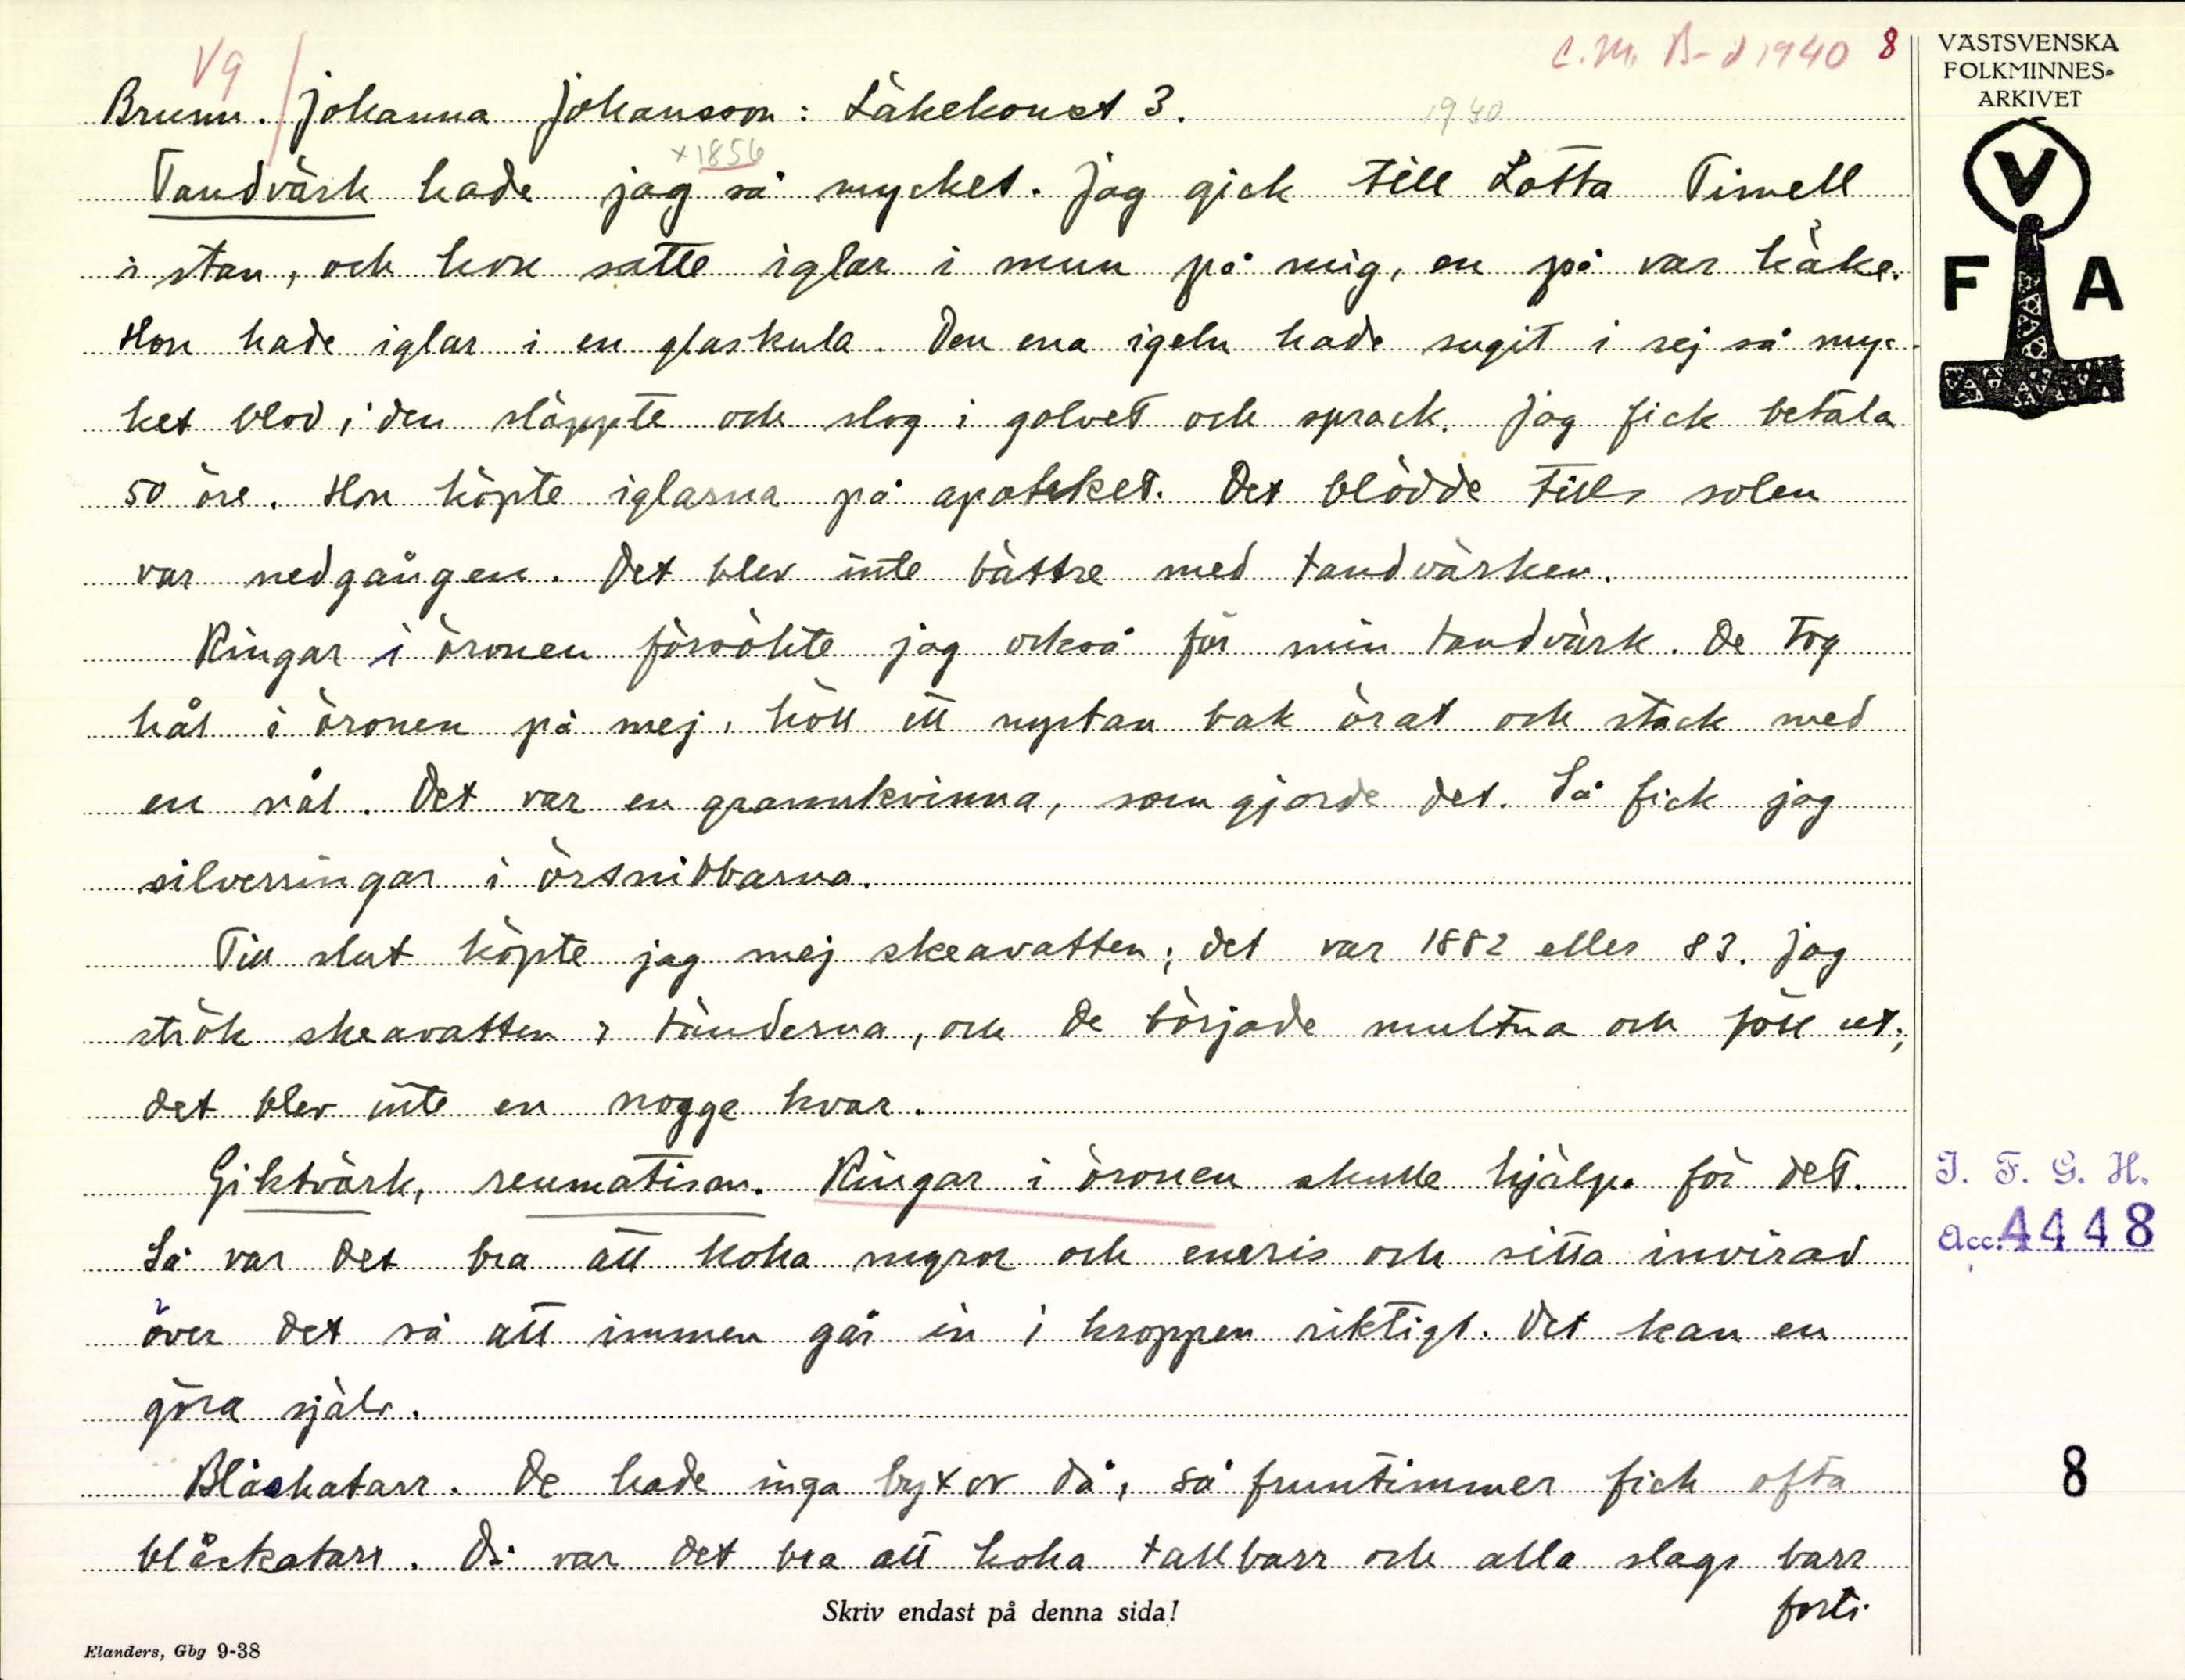 Vg
C. M. B-d 1940 8
Brunn. Johanna Johansson: Läkekonst 3. 1940
×1856
Tandvärk hade jag så mycket. Jag gick till Lotta Timell
i stan, och hon satte iglar i mun på mig, en på var käke.
Hon hade iglar i en glaskula. Den ena igeln hade sugit i sej så myc-
ket blod, den släppte och slog i golvet och sprack. Jag fick betala
50 öre. Hon köpte iglarna på apoteket. Det blödde tills solen
var nedgången. Det blev inte bättre med tandvärken.
Ringar i öronen försökte jag också för min tandvärk. De tog
hål i öronen på mej, höll ett nystan bak örat och stack med
en nål. Det var en grannkvinna, som gjorde det. Så fick jag
silverringar i örsnibbarna.
Till slut köpte jag mej skeavatten; det var 1882 eller 83. Jag
strök skeavatten i tänderna, och de började multna och föll ut;
det blev inte en nogge kvar.
Giktvärk, reumatism. Ringar i öronen skulle hjälpa för det.
Så var det bra att koka myror och eneris och sitta invirad
över det så att immen går in i kroppen riktigt. Det kan en
göra själv.
Blåskatarr. De hade inga byxor då, så fruntimmer fick ofta
blåskatarr. Då var det bra att koka tallbarr och alla slags barr
forts.
Skriv endast på denna sida!
Elanders, Gbg 9-38
VÄSTSVENSKA
FOLKMINNES-
ARKIVET
V
F A
I. F. G. H.
Acc. 4448
8